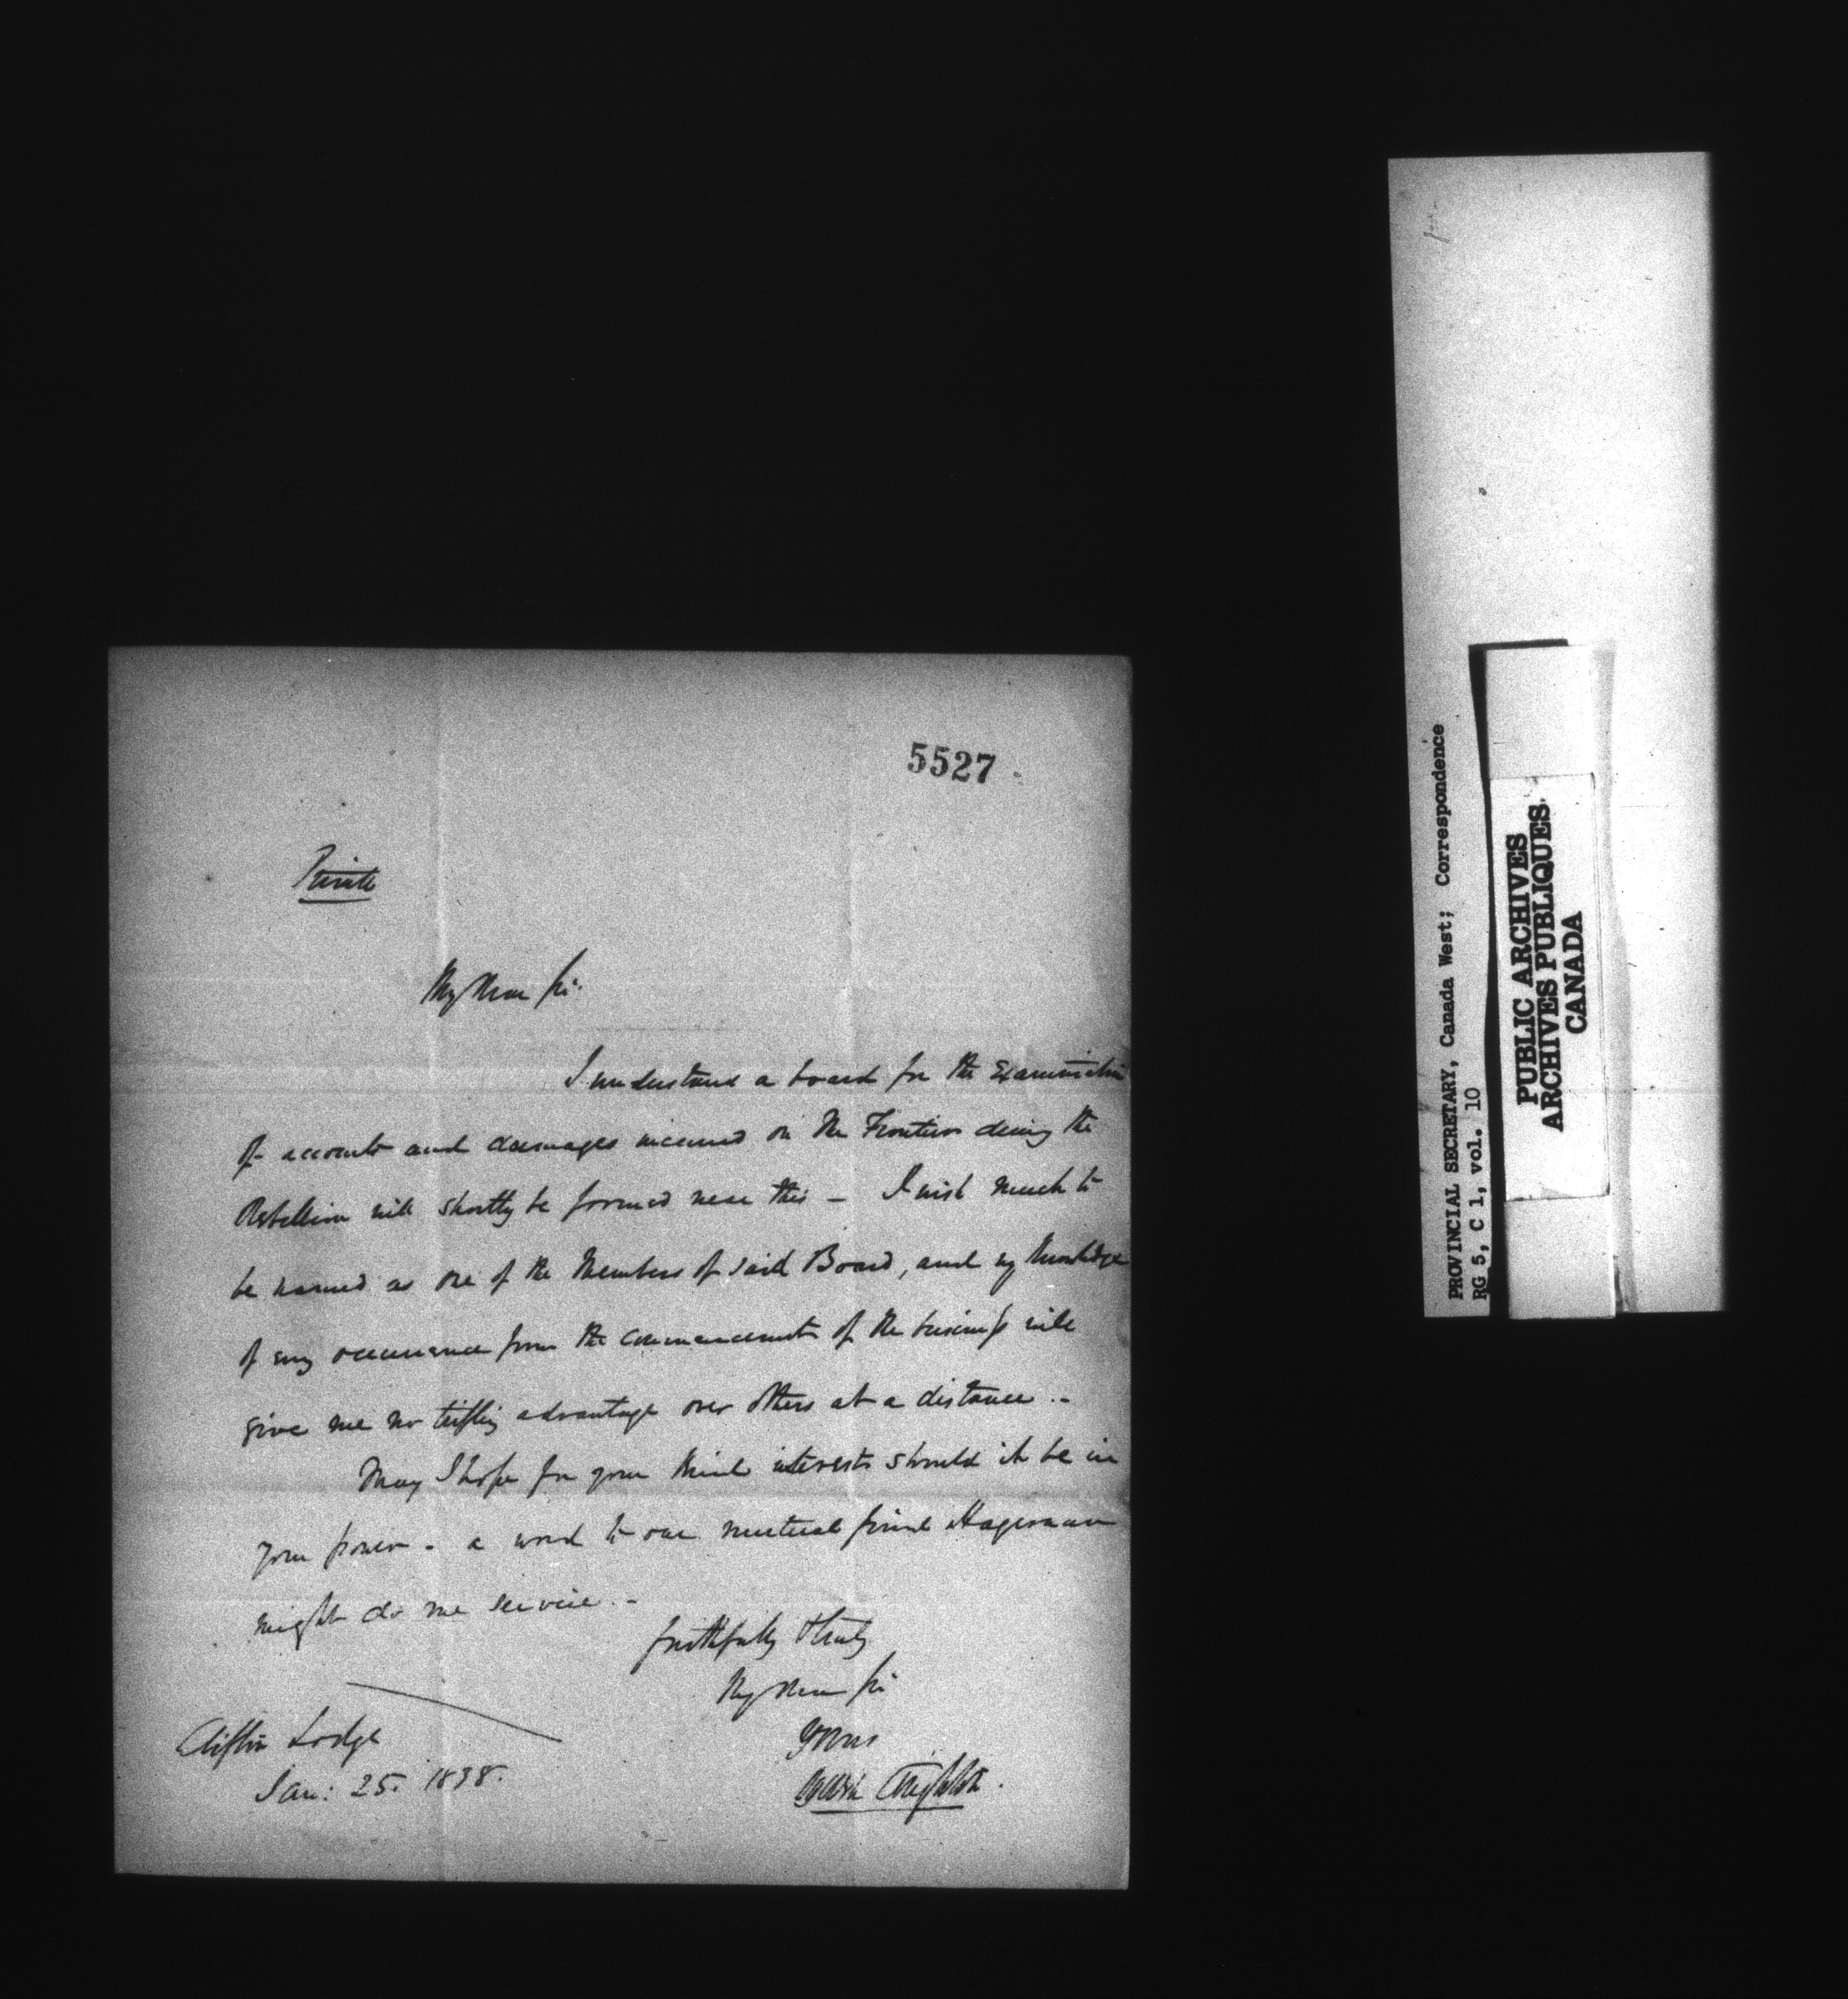 5527
Private
My Dear Sir.
I understand a board for the Examination
of accounts and damages incurred on the Frontier during the
Rebellion will shortly be formed near this – I wish much to
be named as one of the Members of said Board, and my knowledge
of every occurrence from the commencement of the business will
give me no trifling advantage over others at a distance. –
May I hope for your kind interests should it be in
your power – a word to our mutual friend Hagerman
might do me service. –
faithfully & truly
My Dear Sir
Yours
Creighton.
Clifton Lodge
Jan: 25. 1838.
PROVINCIAL SECRETARY, Canada West; Correspondence
RG 5, C 1, vol. 10
PUBLIC ARCHIVES
ARCHIVES PUBLIQUES
CANADA